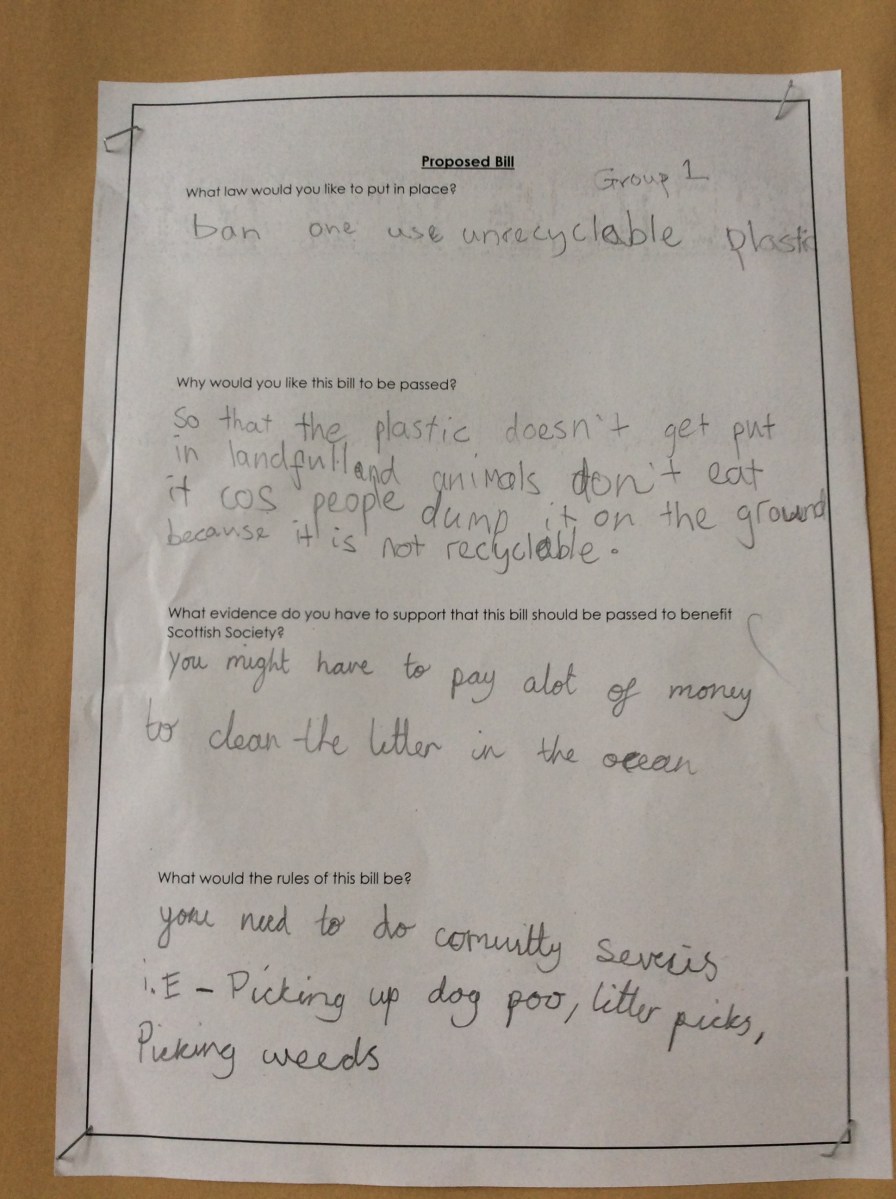 Proposed Bill
Group 1
What law would you like to put in place?
ban one use unrecyclable plastic
Why would you like this bill to be passed?
So that the plastic doesn't get put
in landfull and animals don't eat
it cos people dump it on the ground
because it is not recyclable.
What evidence do you have to support that this bill should be passed to benefit
Scottish Society?
you might have to pay alot of money
to clean the litter in the ocean
What would the rules of this bill be?
need to do comuitty severis
i.E - Picking up dog poo, litter picks,
Picking weeds